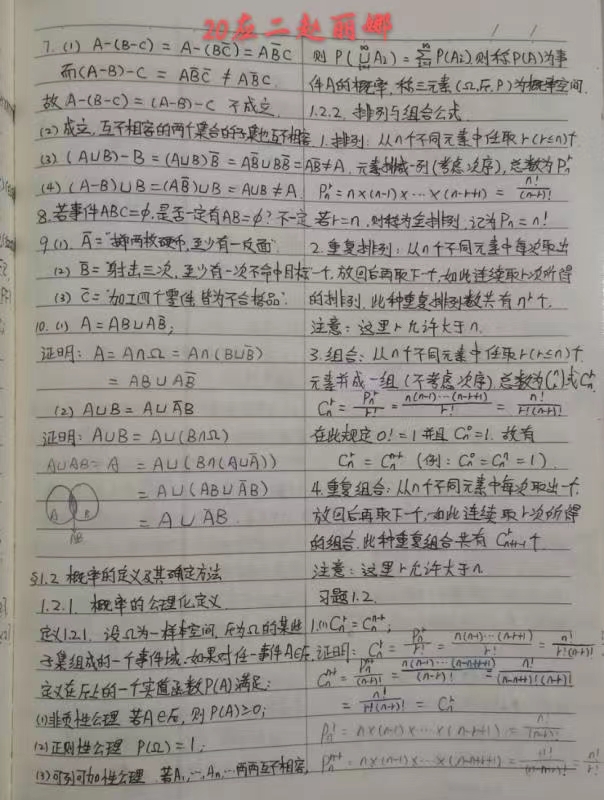 20应二赵丽娜
7. (1) A-(B-C) = A-(BC̅) = AB̅C
而(A-B)-C = AB̅C̅ ≠ AB̅C.
故 A-(B-C) = (A-B)-C 不成立.
(2) 成立, 互不相容的两个集合的子集也互不相容.
(3) (A∪B)-B = (A∪B)B̅ = AB̅∪BB̅ = AB̅≠A.
(4) (A-B)∪B = (AB̅)∪B = A∪B ≠ A.
8. 若事件ABC=∅, 是否一定有AB=∅? 不一定
9. (1). A̅="掷两枚硬币, 至少有一反面".
(2) B̅="射击三次, 至少有一次不命中目标"
(3) C̅="加工四个零件, 皆为不合格品".
10. (1) A = AB∪AB̅;
证明: A = A∩Ω = A∩(B∪B̅)
= AB∪AB̅
(2) A∪B = A∪A̅B
证明: A∪B = A∪(B∩Ω)
A∪AB = A = A∪(B∩(A∪A̅))
= A∪(AB∪A̅B)
= A∪A̅B.
A B
AB
§1.2 概率的定义及其确定方法
1.2.1. 概率的公理化定义
定义1.2.1. 设Ω为一样本空间, F为Ω的某些
子集组成的一个事件域. 如果对任一事件A∈F,
定义在F上的一个实值函数P(A)满足:
(1)非负性公理 若A∈F, 则P(A)≥0;
(2)正则性公理 P(Ω)=1;
(3)可列可加性公理. 若A₁,…,Aₙ,…两两互不相容,
则 P(⋃_{i=1}^{∞} Ai) = ∑_{i=1}^{∞} P(Ai), 则称P(A)为事
件A的概率, 称三元素(Ω,F,P)为概率空间
1.2.2. 排列与组合公式
1. 排列: 从n个不同元素中任取r(r≤n)个
元素排成一列(考虑次序), 总数为Pₙʳ
Pₙʳ = n×(n-1)×…×(n-r+1) = n!/(n-r)!
若r=n, 则称为全排列, 记为Pₙ=n!
2. 重复排列: 从n个不同元素中每次取出
一个, 放回后再取下一个, 如此连续取r次所得
的排列. 此种重复排列数共有nʳ个.
注意: 这里r允许大于n.
3. 组合: 从n个不同元素中任取r(r≤n)个
元素并成一组(不考虑次序) 总数为(n r)或Cₙʳ
Cₙʳ = Pₙʳ/r! = n(n-1)…(n-r+1)/r! = n!/r!(n-r)!
在此规定0!=1并且Cₙ⁰=1. 故有
Cₙʳ = Cₙⁿ⁻ʳ (例: Cₙ⁰=Cₙⁿ=1).
4. 重复组合: 从n个不同元素中每次取出一个,
放回后再取下一个, 如此连续取r次所得
的组合. 此种重复组合共有Cₙ₊ᵣ₋₁ʳ个.
注意: 这里r允许大于n.
习题1.2.
1. (1) Cₙʳ = Cₙⁿ⁻ʳ;
证明: Cₙʳ = Pₙʳ/r! = n(n-1)…(n-r+1)/r! = n!/r!(n-r)!
Cₙⁿ⁻ʳ = Pₙⁿ⁻ʳ/(n-r)! = n(n-1)…(n-n+r+1)/(n-r)! = n!/(n-n+r)!(n-r)!
= n!/r!(n-r)! = Cₙʳ
Pₙʳ = n×(n-1)×…×(n-r+1) = n!/(n-r)!
Pₙⁿ⁻ʳ = n×(n-1)×…×(n-n+r+1) = n!/(n-n+r)! = n!/r!